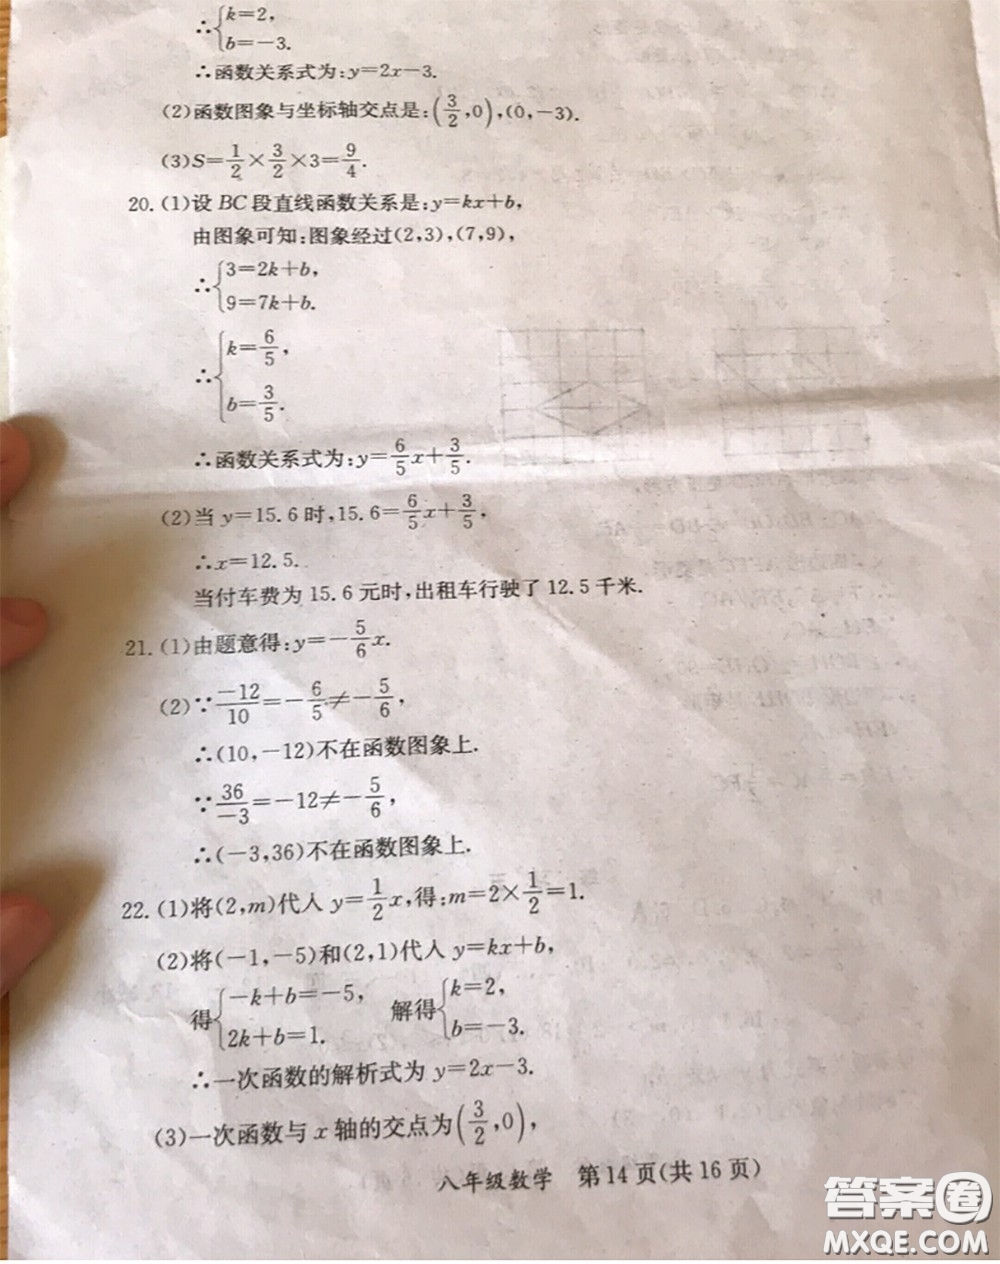 ∴{k=2,
b=-3.
∴函数关系式为:y=2x-3.
(2)函数图象与坐标轴交点是:(3/2,0),(0,-3).
(3)S=1/2×3/2×3=9/4.
20. (1)设 BC 段直线函数关系是:y=kx+b,
由图象可知:图象经过(2,3),(7,9),
∴{3=2k+b,
9=7k+b.
∴{k=6/5,
b=3/5.
∴函数关系式为:y=6/5x+3/5.
(2)当 y=15.6时,15.6=6/5x+3/5,
∴x=12.5.
当付车费为 15.6 元时,出租车行驶了 12.5 千米.
21. (1)由题意得:y=-5/6x.
(2)∵-12/10=-6/5≠-5/6,
∴(10,-12)不在函数图象上.
∵36/-3=-12≠-5/6,
∴(-3,36)不在函数图象上.
22. (1)将(2,m)代人 y=1/2x,得:m=2×1/2=1.
(2)将(-1,-5)和(2,1)代人 y=kx+b,
得{-k+b=-5, 解得{k=2,
2k+b=1. b=-3.
∴一次函数的解析式为 y=2x-3.
(3)一次函数与 x 轴的交点为(3/2,0),
八年级数学 第14页(共16页)
答案圈
MXQE.COM